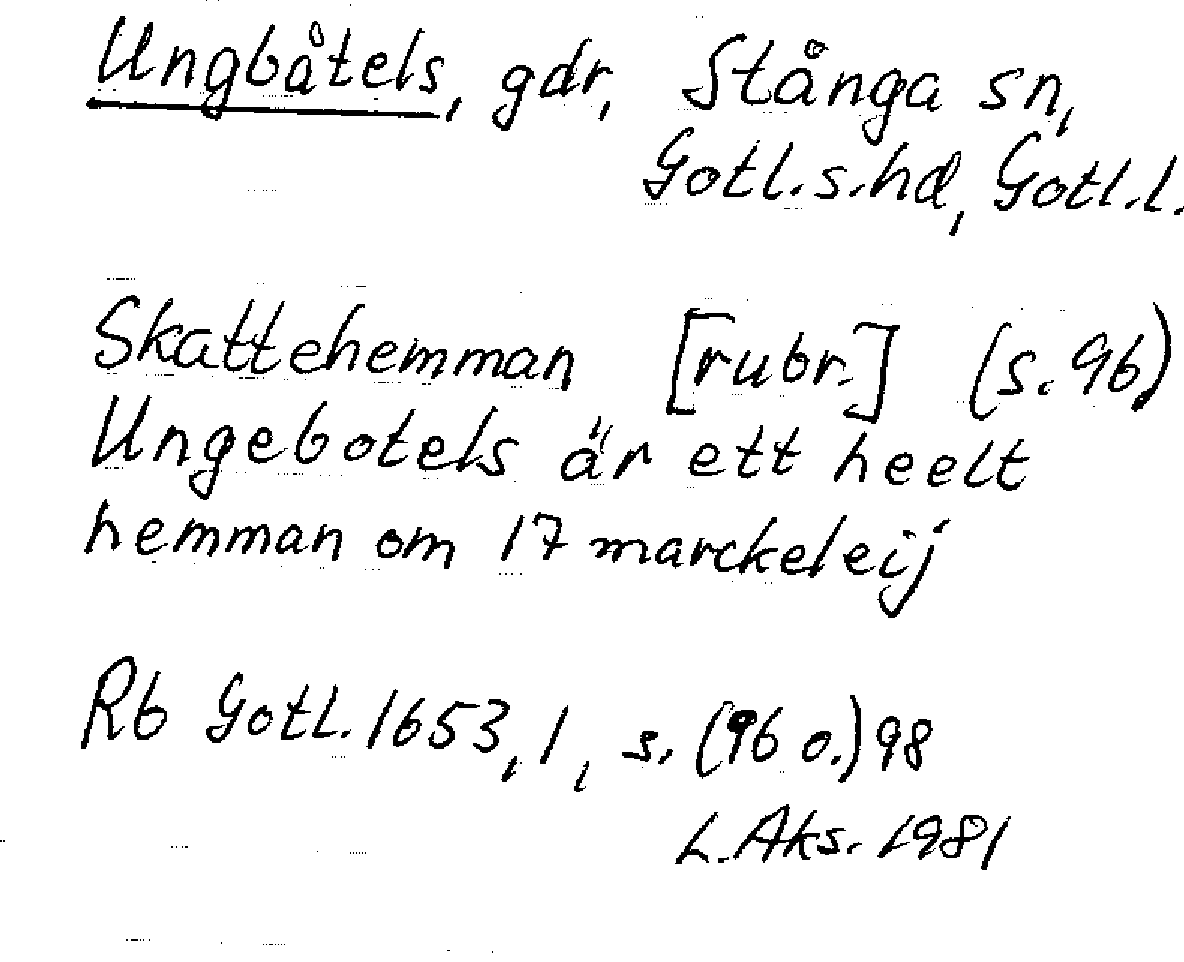 Ungbåtels, gdr, Stånga sn,
Gotl.s.hd, Gotl.l.
Skattehemman [rubr.] (s.96)
Ungebotels är ett heelt
hemman om 17 marckeleij
Rb Gotl.1653,1, s.(96 o.)98
L.Aks.1981